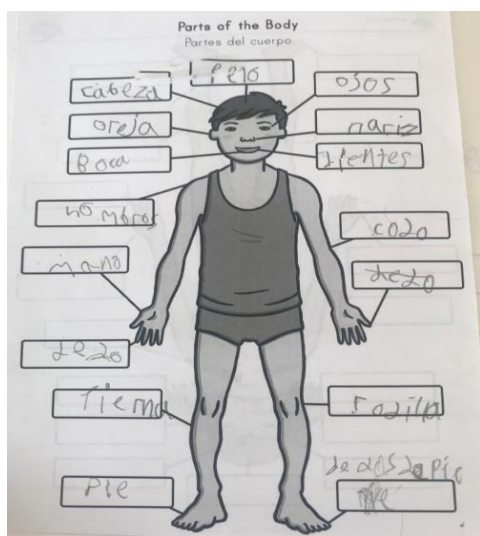 Parts of the Body
Partes del cuerpo
Pelo
cabeza
ojos
oreja
nariz
Boca
dientes
hombros
codo
mano
dedo
dedo
Pierna
rodilla
dedosdepie
Pie